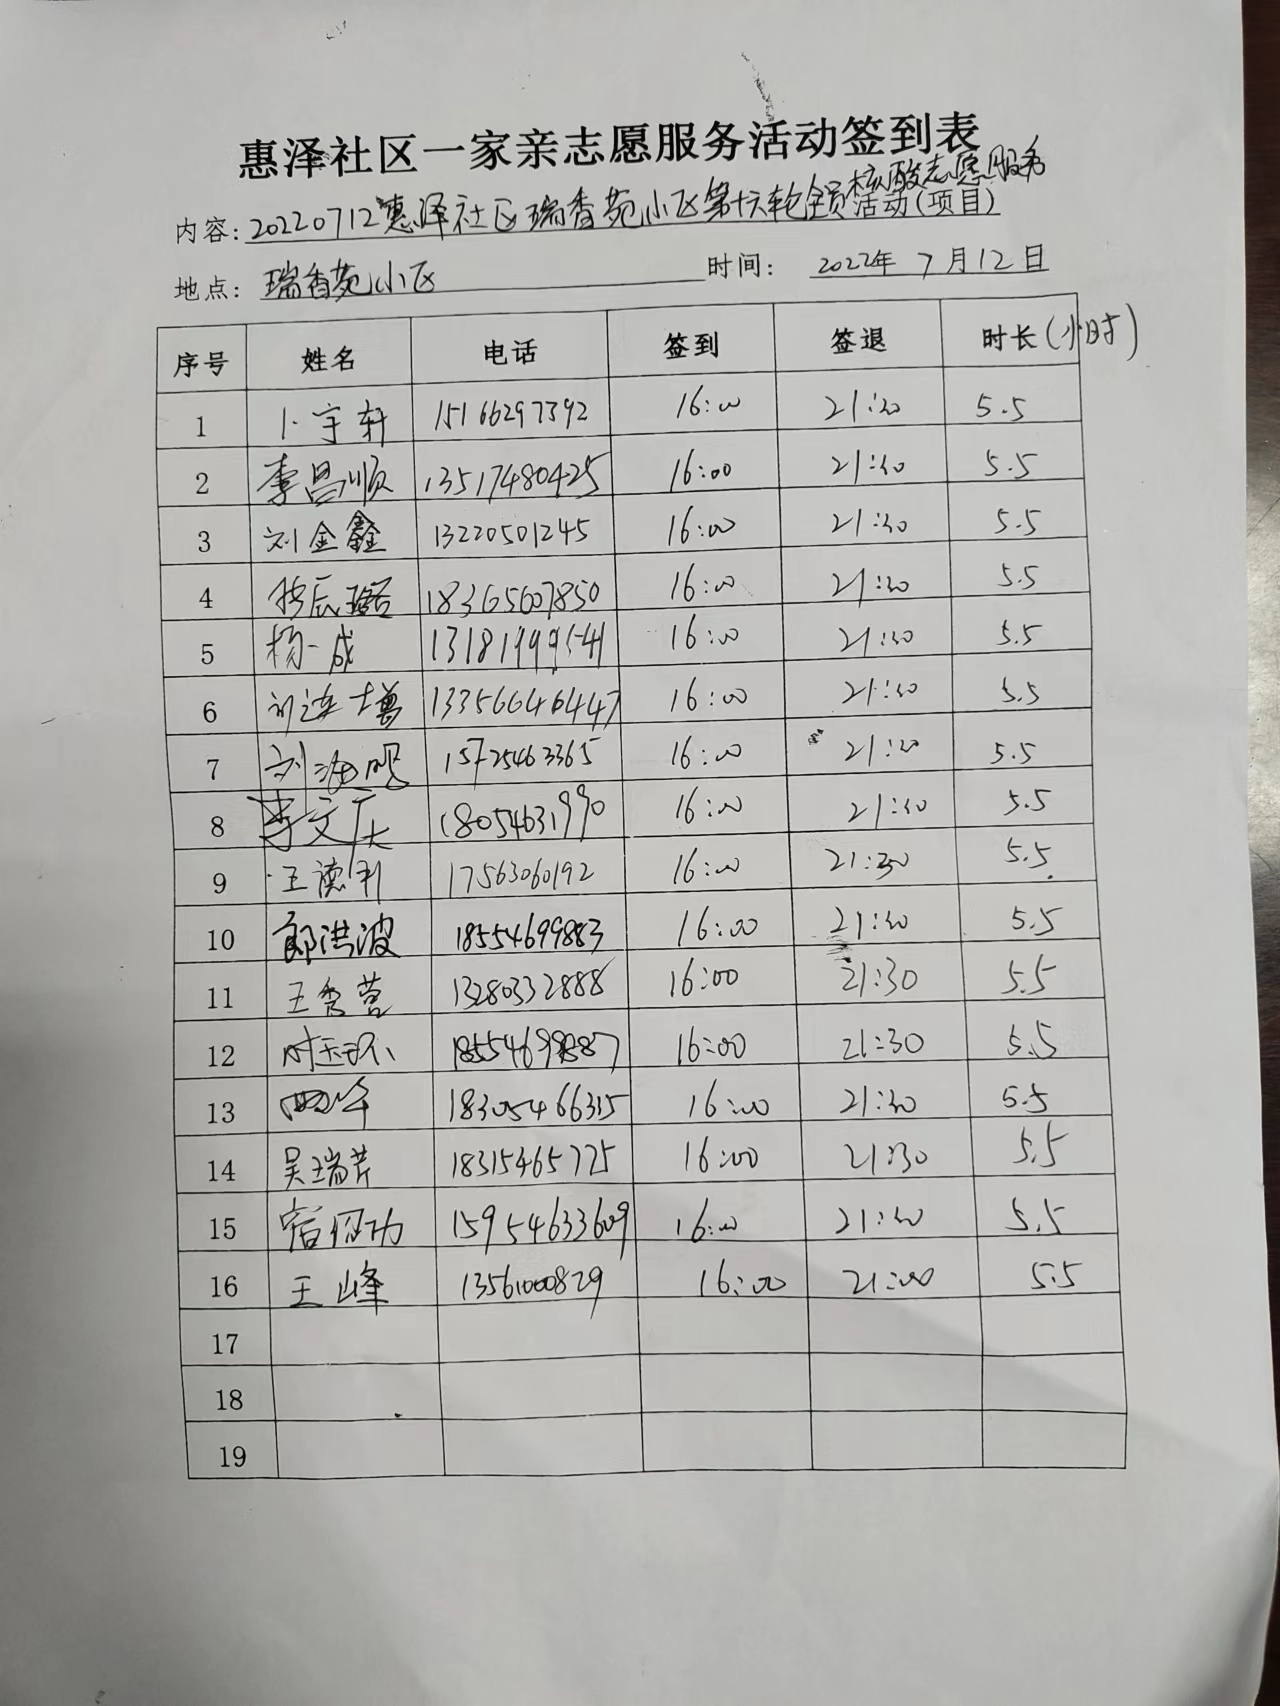 惠泽社区一家亲志愿服务活动签到表
内容: 20220712惠泽社区瑞香苑小区第十六轮全员核酸志愿服务活动(项目)
地点: 瑞香苑小区 时间: 2022年7月12日
序号 姓名 电话 签到 签退 时长(小时)
1 卜宇轩 15166297392 16:00 21:30 5.5
2 李昌顺 13517480425 16:00 21:30 5.5
3 刘金鑫 13220501245 16:00 21:30 5.5
4 18365607850 16:00 21:30 5.5
5 杨一成 16:00 21:30 5.5
6 刘连增 13356646447 16:00 21:30 5.5
7 15725463365 16:00 21:30 5.5
8 李文庆 18054631990 16:00 21:30 5.5
9 王德利 17563060192 16:00 21:30 5.5
10 郎洪波 18554699883 16:00 21:30 5.5
11 王秀营 13280332888 16:00 21:30 5.5
12 18554699887 16:00 21:30 5.5
13 18305466315 16:00 21:30 5.5
14 吴瑞芹 18315465725 16:00 21:30 5.5
15 15954633609 16:00 21:30 5.5
16 王峰 13561000829 16:00 21:00 5.5
17
18
19